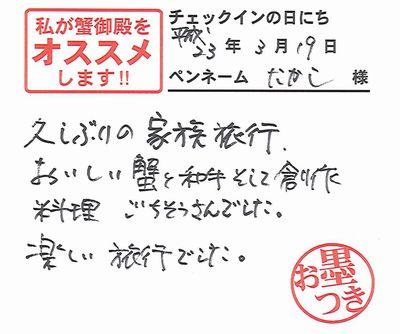 私が蟹御殿を
オススメ
します!!
チェックインの日にち
平成23年3月19日
ペンネーム たかし 様
久しぶりの家族旅行、
おいしい蟹と和牛そして創作
料理 ごちそうさんでした。
楽しい旅行でした。
お墨つき